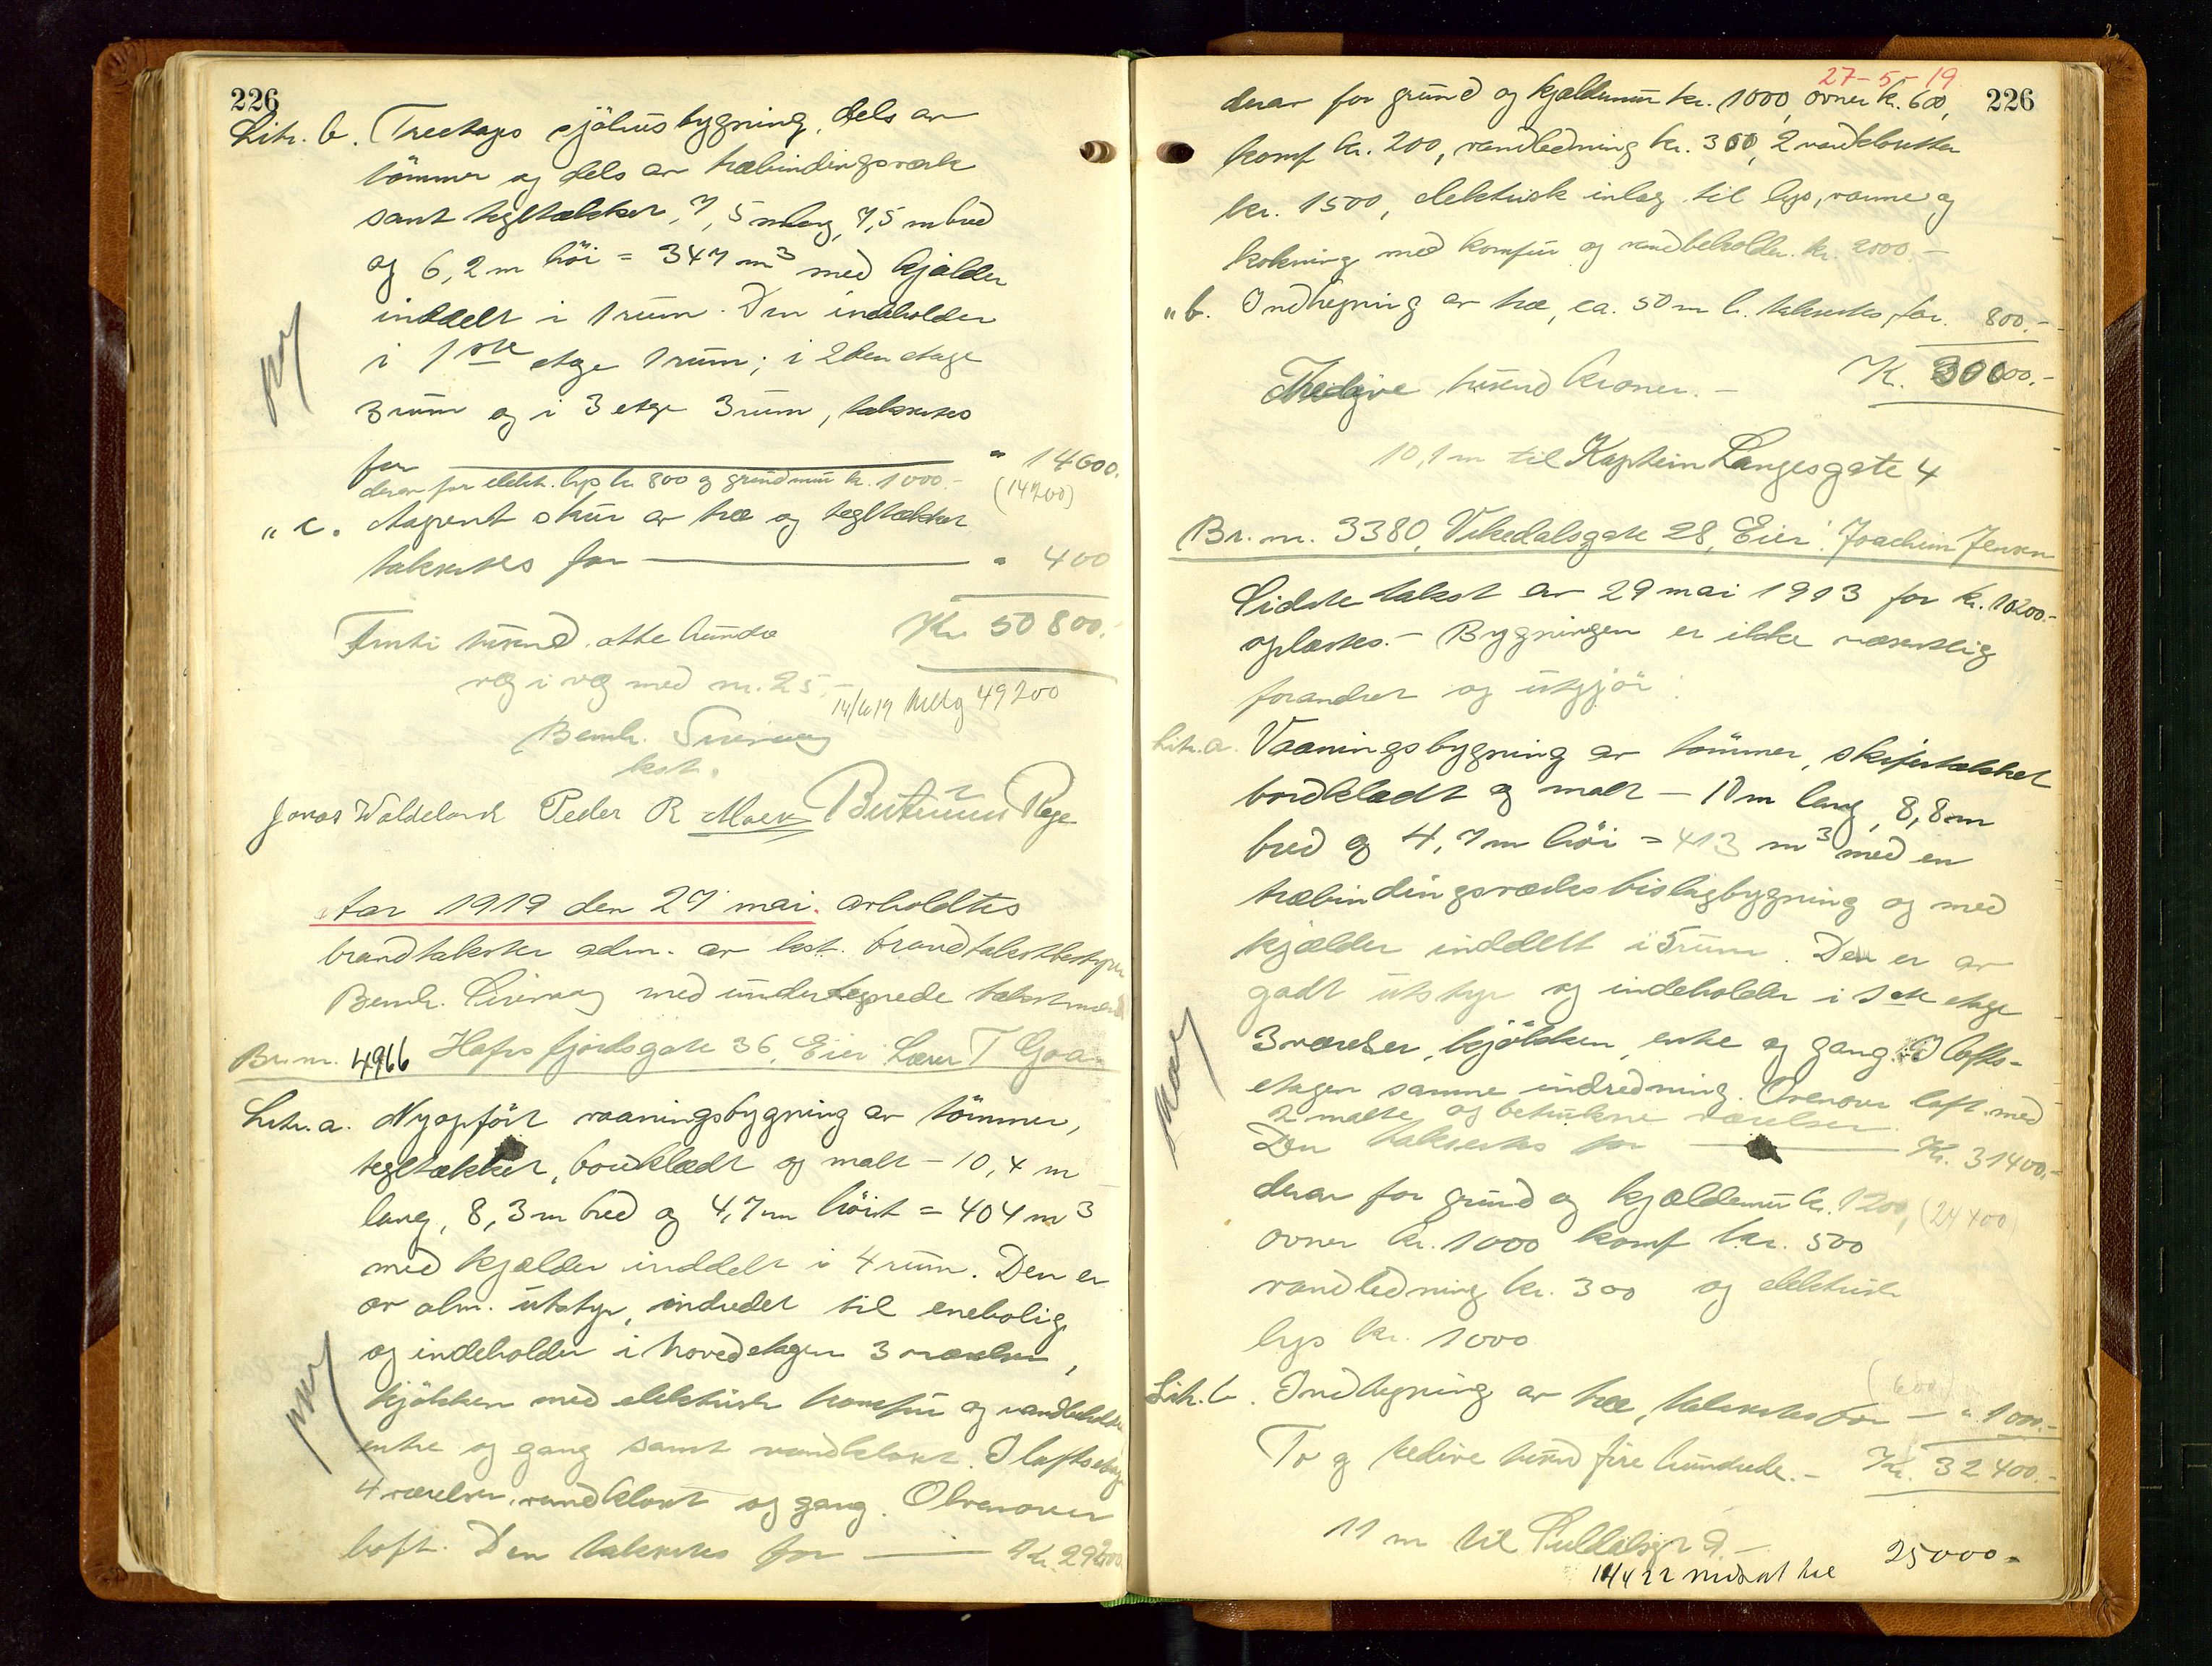 226
Litr. b. Treetages sjöhusbygning, dels av
tömmer og dels av træbindingsverk
samt tegltækket, 7,5 m lang, 7,5 m bred
og 6,2 m höi = 347 m³ med kjælder
inddelt i 1 rum. Den indeholder
i 1ste etage 1 rum; i 2den etage
3 rum og i 3 etge 3 rum, takseres
for " 14600.
derav for elektr. lys kr 800 og grundmur kr. 1000.- (14200)
" c. Aapent skur av træ og tegltækket
takseres for " 400
Femti tusend otte hundre Kr. 50 800.
væg i væg med nr. 25.-
14/6 19 49200
Bernh.
kst.
Jonas Waldeland Peder R Moe Rege
Aar 1919 den 27 mai avholdtes
brandtakster adm. av kst. brandtakstbestyrer
Bernh. med undertegnede takstmænd
Br. nr. 4966 Hafrsfjordsgate 36, Eier Lærer T Goa
Litr. a. Nyopfört vaaningsbygning av tömmer,
tegltækket, bordklædt og malt - 10,4 m
lang, 8,3 m bred og 4,7 m höit = 404 m³
med kjælder inddelt i 4 rum. Den er
av alm. utstyr, indredet til enebolig
og indeholder i hovedetagen 3 værelser,
kjökken med elektrisk komfur og vandbeholder
entre og gang samt vandklosæt. I loftsetage
4 værelser, vandklosæt og gang. Ovenover
loft. Den takseres for Kr. 29200
27-5-19
226
derav for grund og kjældermur kr. 1000, ovner kr. 600,
komf kr. 200, vandledning kr. 300, 2 vandklosetter
kr. 1500, elektrisk inlæg til lys, varme og
kokning med komfur og vandbeholder kr. 2000.-
" b. Indhegning av træ, ca. 50 m l. takseres for 800.-
Tredive tusend kroner.- Kr. 30000.-
10,1 m til Kaptein Langesgate 4
Br. nr. 3380, Vikedalsgate 28, Eier: Joachim Jensen
Sidste takst av 29 mai 1913 for kr. 10200.-
oplæstes.- Bygningen er ikke væsentlig
forandret og utgjör:
Litr. a. Vaaningsbygning av tömmer, skifertækket
bordklædt og malt - 10 m lang, 8,8 m
bred og 4,7 m höi = 413 m³ med en
træbindingsverks bislagbygning og med
kjælder inddelt i 5 rum. Den er av
godt utstyr og indeholder i 1ste etage
3 værelser, kjökken, entre og gang. I lofts-
etagen samme indredning. Ovenover loft med
2 malte og betrukne værelser.
Den takseres for Kr. 31400.-
derav for grund og kjældermur kr. 1200, (24400)
ovner kr. 1000 komf kr. 500
vandledning kr. 300 og elektrisk
lys kr. 1000
Litr. b. Indhegning av træ, takseres for - " 1000.-
(600)
To og tredive tusend fire hundrede.- Kr. 32400.-
11 m til
22 nedsat til 25000.-